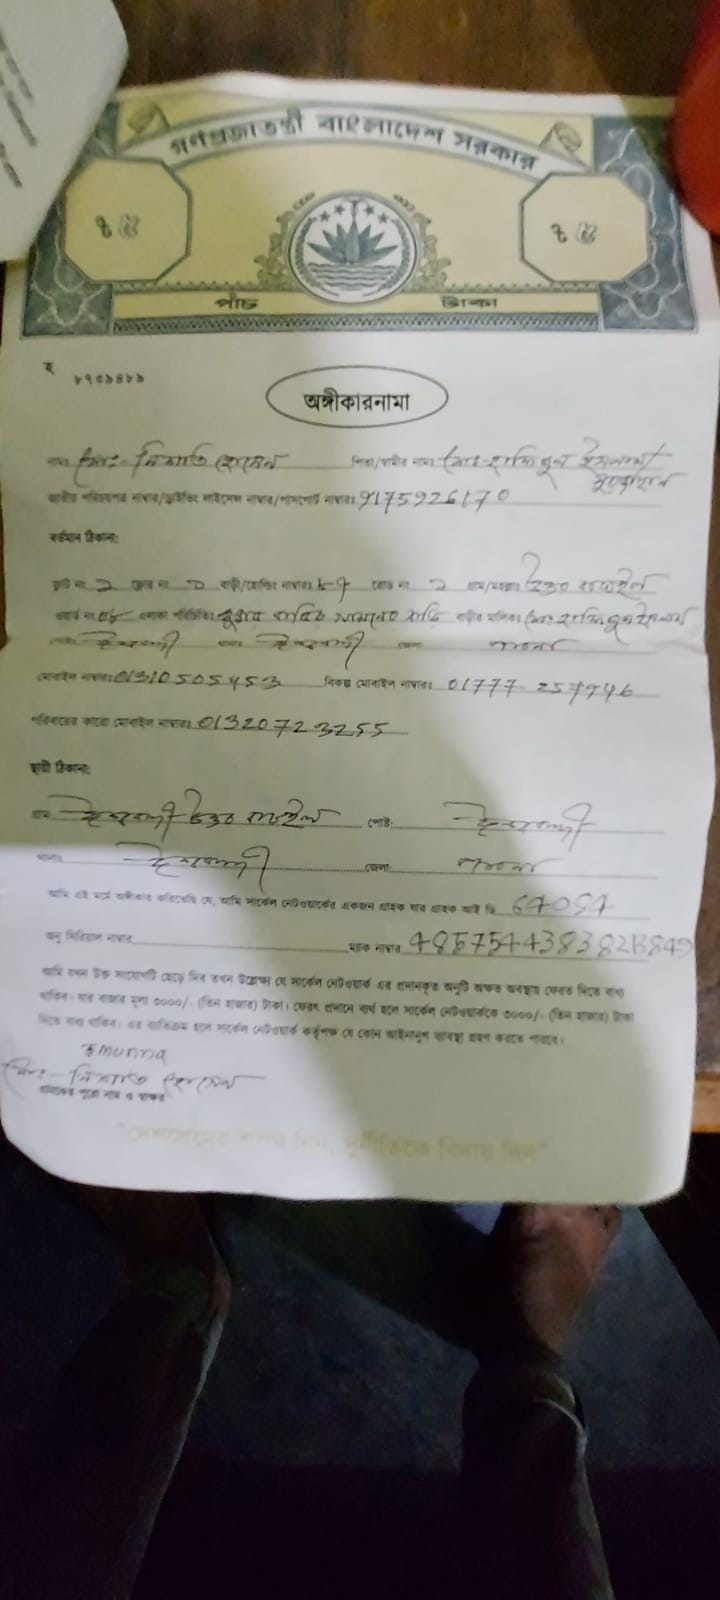 গণপ্রজাতন্ত্রী বাংলাদেশ সরকার
৳ ৫ ৳ ৫
পাঁচ টাকা
৮৭৩৯৪৮৯
অঙ্গীকারনামা
নাম মোঃ নিশাত হোসেন পিতা/স্বামীর নামঃ মোঃ হাফিজুল ইসলাম
জাতীয় পরিচয়পত্র নাম্বার/ড্রাইভিং লাইসেন্স নাম্বার/পাসপোর্ট নাম্বারঃ 9175926170
বর্তমান ঠিকানা:
ফ্লাট নং ১ ফ্লোর নং ১ বাড়ী/হোল্ডিং নাম্বারঃ রোড নং ১ গ্রাম/মহল্লাঃ
ওয়ার্ড নং ০৮ এলাকা পরিচিতিঃ সামনের বাড়ি বাড়ীর মালিকঃ মোঃ হাফিজুল ইসলাম
ঈশ্বরদী ঈশ্বরদী জেলা পাবনা
মোবাইল নাম্বারঃ 01310505453 বিকল্প মোবাইল নাম্বারঃ 01777-257946
পরিবারের কারো মোবাইল নাম্বারঃ 01320723255
স্থায়ী ঠিকানা:
গ্রামঃ ঈশ্বরদী পোষ্ট: ঈশ্বরদী
থানাঃ ঈশ্বরদী জেলা: পাবনা
আমি এই মর্মে অঙ্গীকার করিতেছি যে, আমি সার্কেল নেটওয়ার্কের একজন গ্রাহক যার গ্রাহক আই ডি 64054
অনু সিরিয়াল নাম্বার ম্যাক নাম্বার 485754438382B849
আমি যখন উক্ত সংযোগটি ছেড়ে দিব তখন উল্লেক্ষ্য যে সার্কেল নেটওয়ার্ক এর প্রদানকৃত অনুটি অক্ষত অবস্থায় ফেরত দিতে বাধ্য
থাকিব। যার বাজার মূল্য ৩০০০/- (তিন হাজার) টাকা। ফেরৎ প্রদানে ব্যর্থ হলে সার্কেল নেটওয়ার্ককে ৩০০০/- (তিন হাজার) টাকা
দিতে বাধ্য থাকিব। এর ব্যতিক্রম হলে সার্কেল নেটওয়ার্ক কর্তৃপক্ষ যে কোন আইনানুগ ব্যবস্থা গ্রহণ করতে পারবে।
munna
মোঃ নিশাত হোসেন
গ্রাহকের পুরো নাম ও স্বাক্ষর
"দেশপ্রেমের শপথ নিন, দুর্নীতিকে বিদায় দিন"